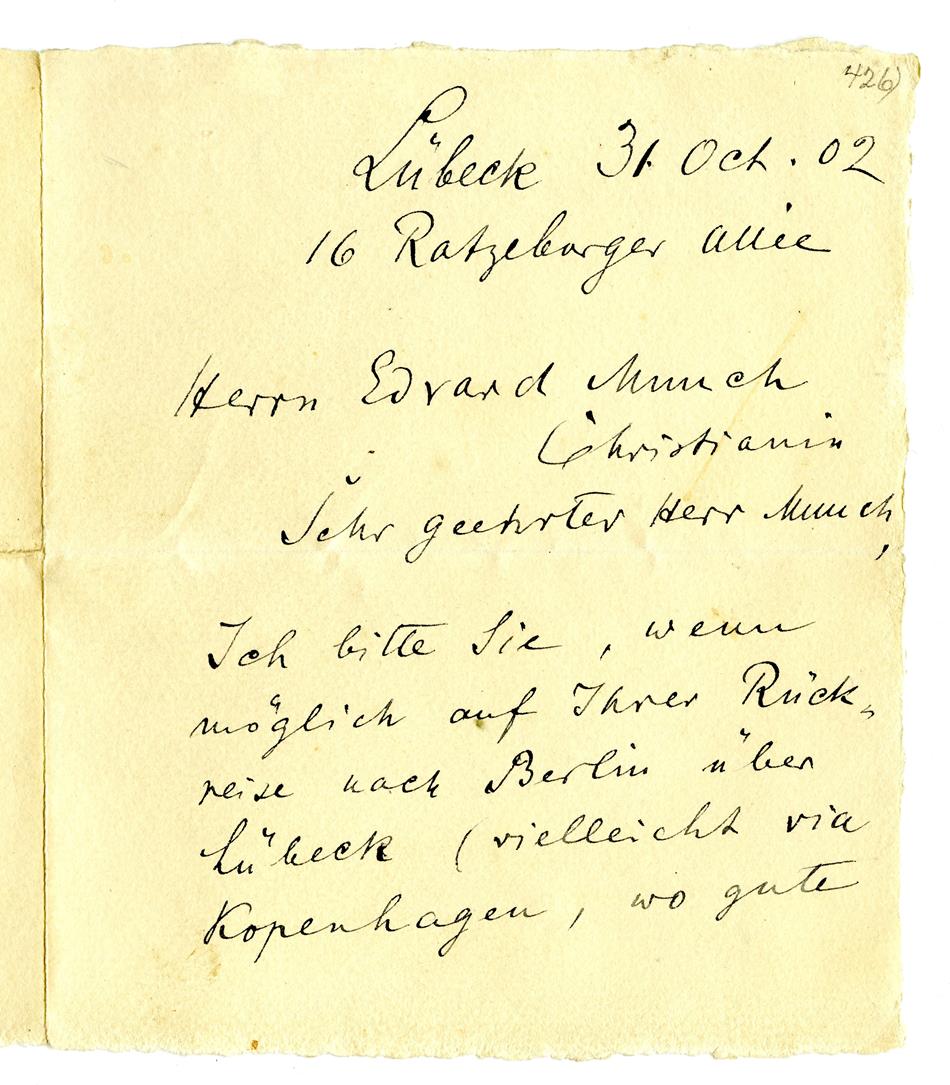 426)
Lübeck 31. Oct. 02
16 Ratzeburger Allee
Herrn Edvard Munch
Christiania
Sehr geehrter Herr Munch,
Ich bitte Sie, wenn
möglich auf Ihrer Rück-
reise nach Berlin über
Lübeck (vielleicht via
Kopenhagen, wo gute